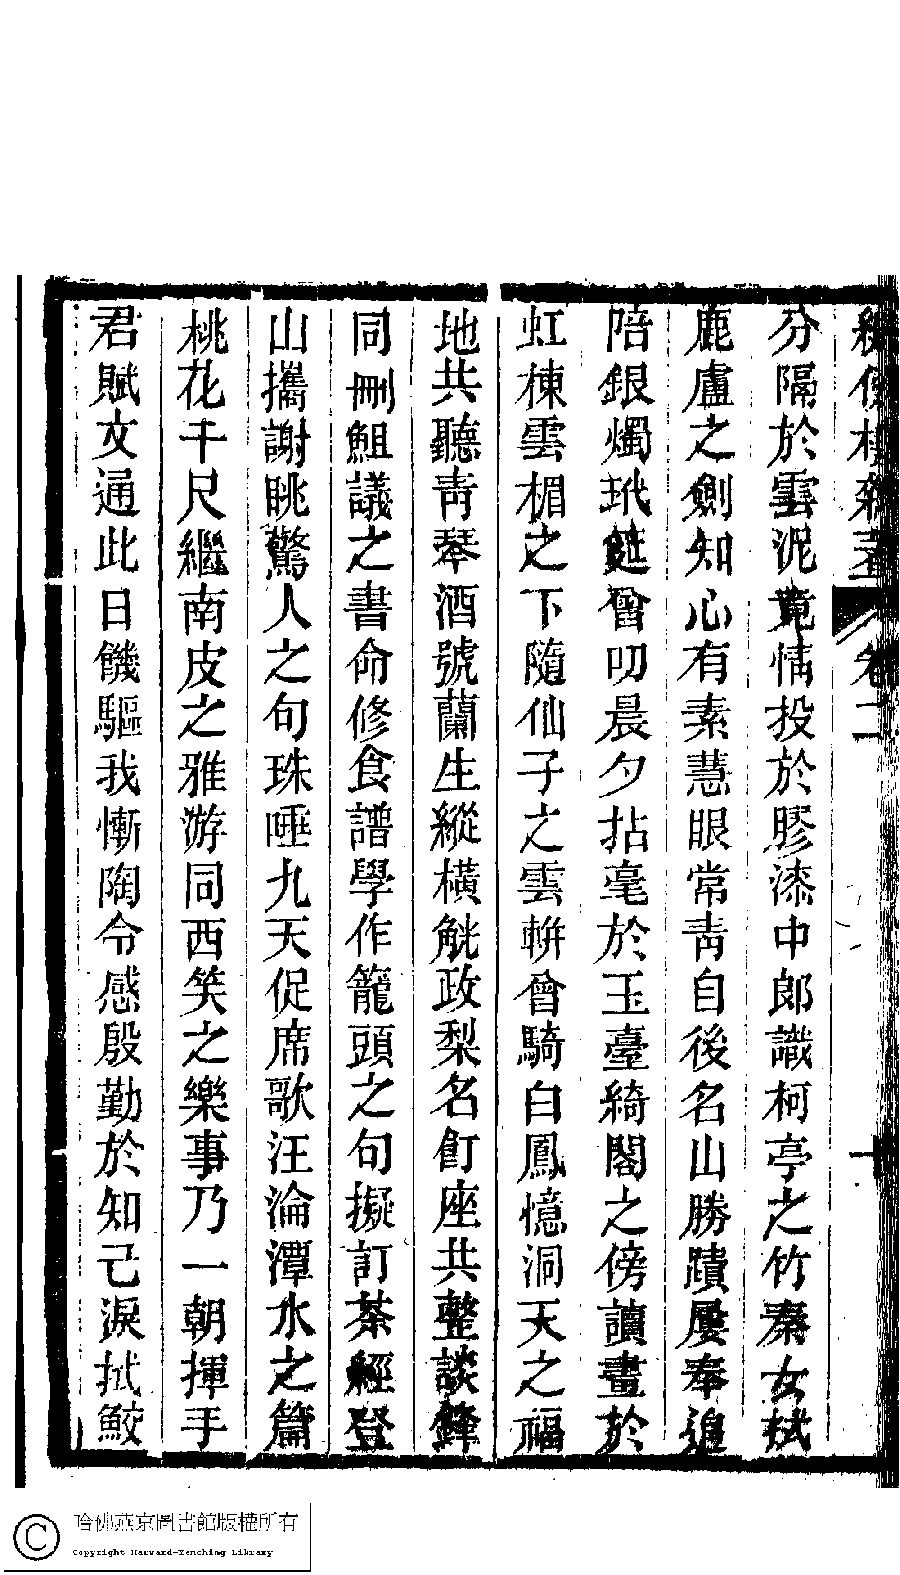 卷二
十
分隔於雲泥竟情投於膠漆中郎識柯亭之竹秦女拭
鹿盧之劍知心有素慧眼常青自後名山勝蹟屢奉追
陪銀燭玳筵曾叨晨夕拈毫於玉臺綺閣之傍讀畫於
虹棟雲楣之下隨仙子之雲輧曾騎白鳳憶洞天之福
地共聽青琴酒號蘭生縱橫觥政梨名飣座共整談鋒
同刪䱉議之書命修食譜學作籠頭之句擬訂茶經登
山攜謝眺驚人之句珠唾九天促席歌汪淪潭水之篇
桃花千尺繼南皮之雅游同西笑之樂事乃一朝揮手
君賦文通此日饑驅我慚陶令感殷勤於知己淚拭鮫
哈佛燕京圖書館版權所有
Copyright Harvard-Yenching Library